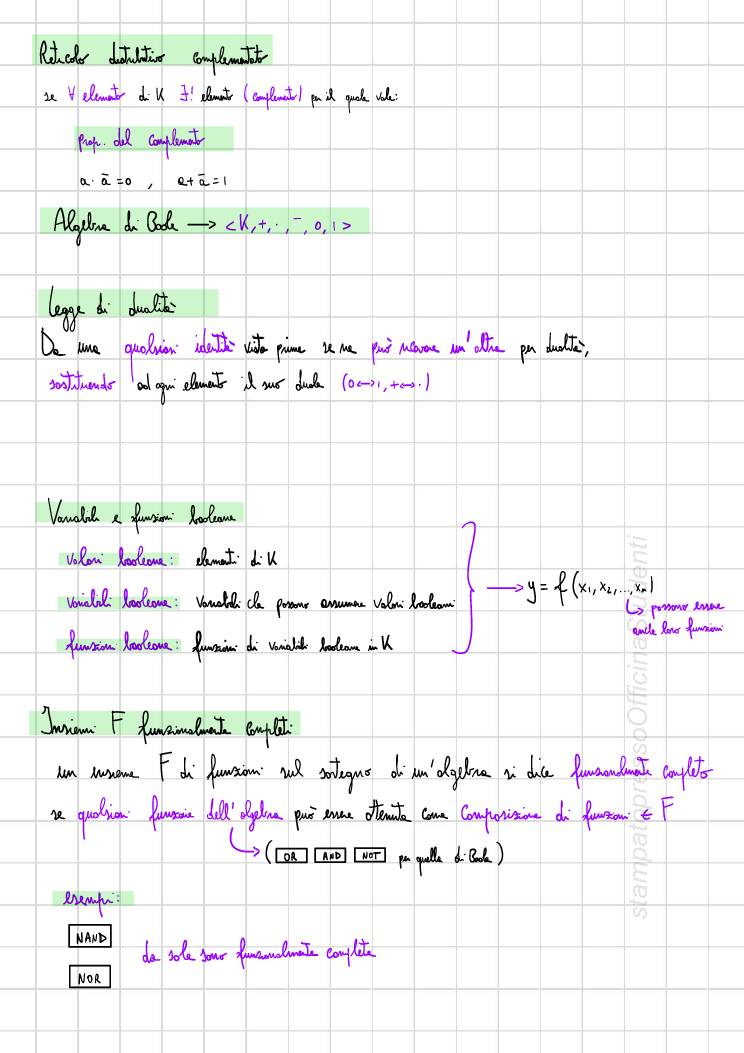 Reticolo distributivo complementato
se ∀ elemento di K ∃! elemento (complemento) per il quale vale:
prop. del complemento
a · ā = 0 , a + ā = 1
Algebra di Boole → <K, +, ·, ¯, 0, 1>
Legge di dualità
Da una qualsiasi identità vista prima se ne può ricavare un'altra per dualità,
sostituendo ad ogni elemento il suo duale (0↔1, +↔·)
Variabili e funzioni booleane
valori booleani: elementi di K
variabili booleane: variabili che possono assumere valori booleani
funzioni booleane: funzioni di variabili booleane in K
→ y = f (x₁, x₂, ..., xₙ)
↳ possono essere
anche loro funzioni
Insiemi F funzionalmente completi
un insieme F di funzioni sul sostegno di un'algebra si dice funzionalmente completo
se qualsiasi funzione dell'algebra può essere ottenuta come composizione di funzioni ∈ F
→ ( OR AND NOT per quella di Boole )
esempi:
NAND
da sole sono funzionalmente complete
NOR
stampatopressoOfficinaStudenti